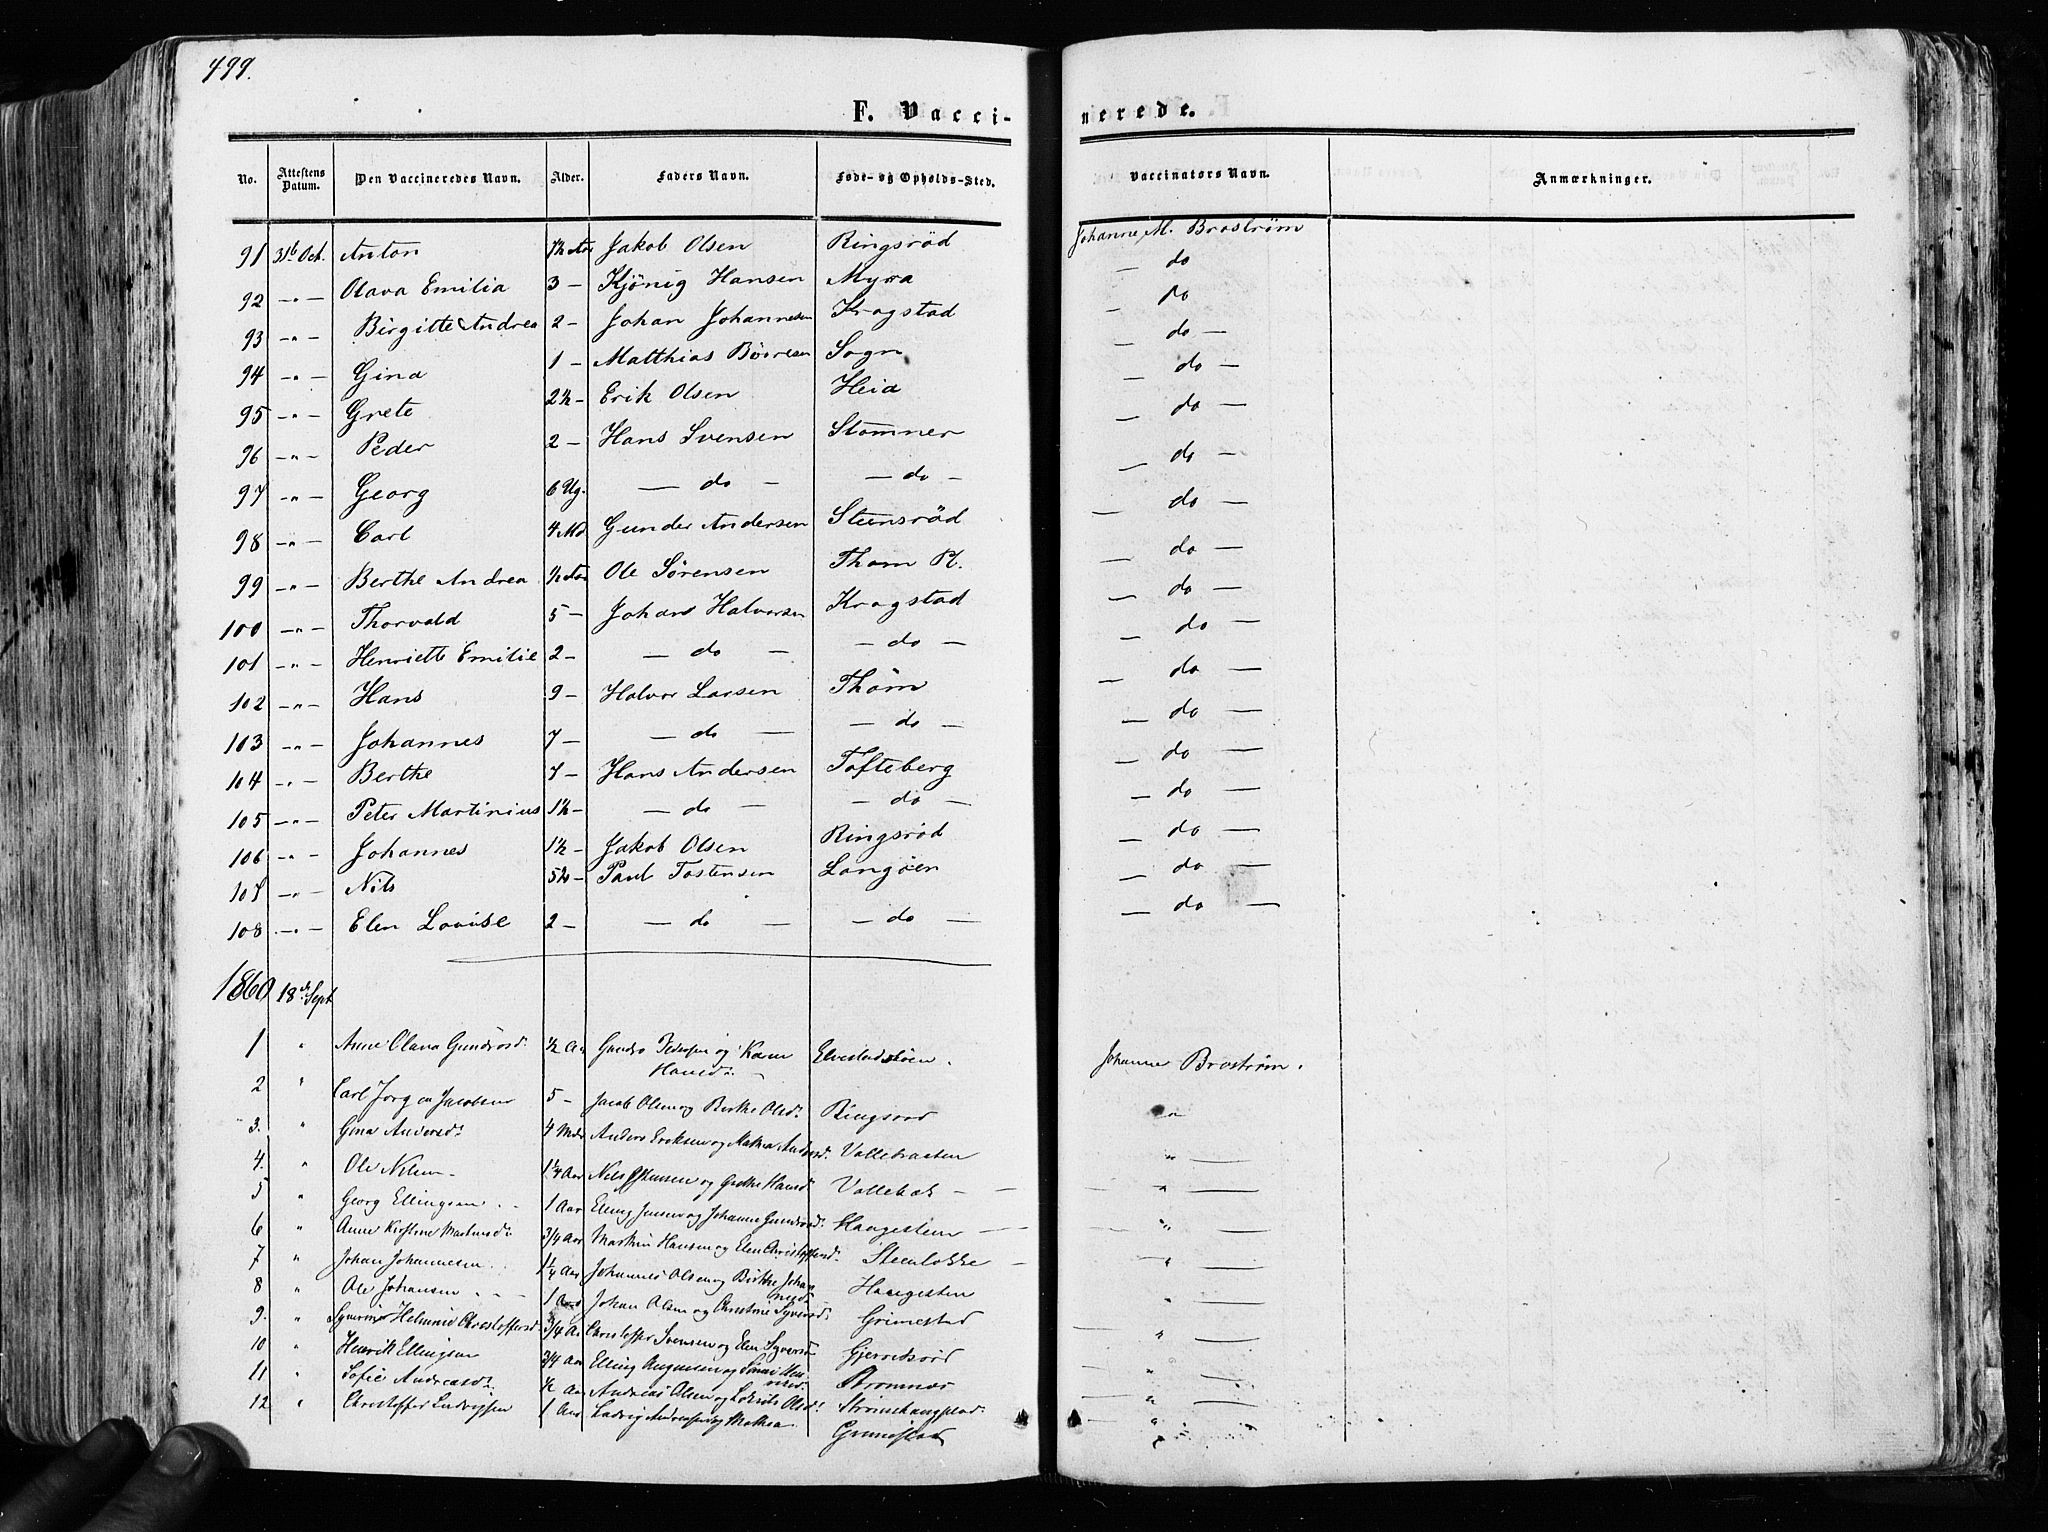 499.
F. Vacci-
nerede.
No. Attestens Datum. Den Vaccineredes Navn. Alder. Faders Navn. Føde- og Opholds-Sted. Vaccinators Navn. Anmærkninger.
91 31te Oct. Anton 7½ Aar Jakob Olsen Ringsröd Johanne M. Broström
92 -"- Olava Emilia 3 - Kjönig Hansen Myra — do
93 -"- Birgitte Andrea 2 - Johan Johannesen Krogstad — do
94 -"- Gina 1 - Matthias Börresen Sogn — do —
95 -"- Grete 2½ - Erik Olsen Heia — do —
96 -"- Peder 2 - Hans Svensen Stomner — do —
97 -"- Georg 6 Ug. — do — — do — — do —
98 -"- Carl 4 Md Gunder Andersen Steensröd — do —
99 -"- Berthe Andrea ½ Aar Ole Sörensen Thom Pl. — do —
100 -"- Thorvald 5 - Johan Halvorsen Krogstad — do —
101 -"- Henriette Emilie 2 - — do — — do — — do —
102 -"- Hans 9 - Halvor Larsen Thom — do —
103 -"- Johannes 7 - — do — — do — — do —
104 -"- Berthe 7 - Hans Andersen Tofteberg — do —
105 -"- Peter Martinius 1½ - — do — — do — — do —
106 -"- Johannes 1½ - Jakob Olsen Ringsröd — do —
107 -"- Nils 5½ - Paul Tostensen Langöen — do —
108 -"- Elen Lovise 2 - — do — — do — — do —
1860 18de Sept
1 " Anne Olava Gundrosd. ½ Aar Gundro Pedersen og Karen Hansd. Johanne Broström.
2 " Carl Jörgen Jacobsen 5 - Jacob Olsen og Birthe Olsd. Ringsrød "
3. " Gina Andersd. 4 Mdr Anders Eriksen og Mathea Andersd. Vallebraaten
4. " Ole Nilsen 1¼ Aar Nils og Grethe Hansd. Vallebæk
5 " Georg Ellingsen 1 Aar Elling Jensen og Johanne Gundrosd. Haugesteen
6 " Anne Kirstine Martinsd. 3/4 Aar Martin Hansen og Elen Christoffersd. Steenløkke
7 " Johan Johannesen 1¼ Aar Johannes Olsen og Birthe Johannesd. Haugesten
8 " Ole Johansen 1 Aar Johan Olsen og Christine Syversd. Grimestad
9. " Helmine Christoffersd. 3/4 Aar Christoffer Svensen og Elen Syversd.
10 " Henrik Ellingsen 3/4 Aar Elling og
11 " Sofie Andreasd. ½ Aar Andreas Olsen og Olsd.
12 " Christoffer Ludvigsen 1 Aar Ludvig Andersen og Mathea Grimestad